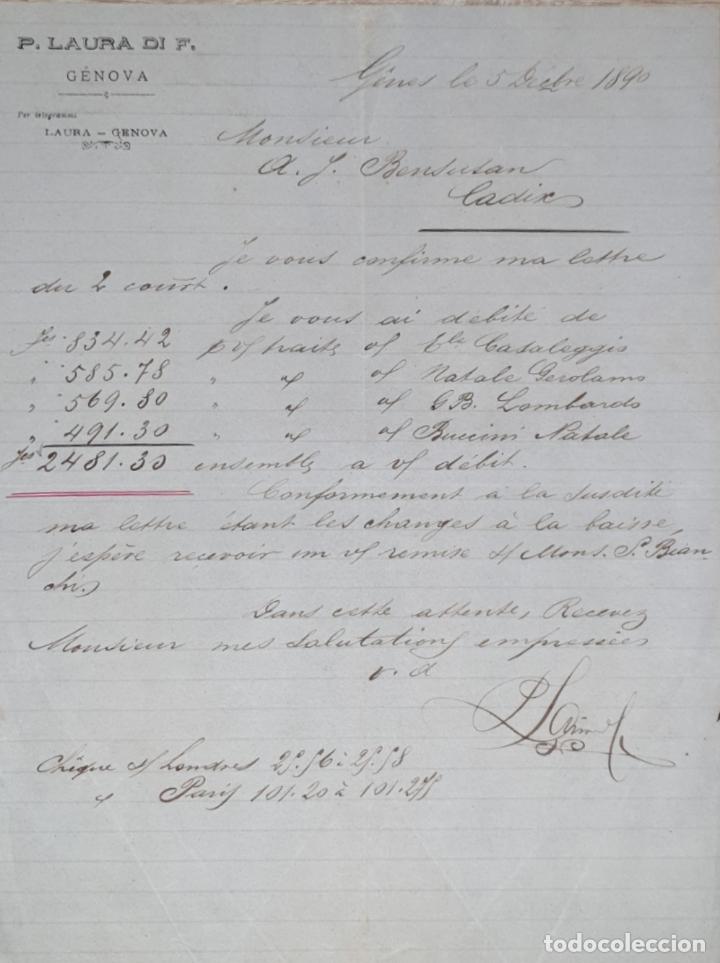 P. LAURA DI F.
GÉNOVA
Per telegrammi
LAURA – GENOVA
Gênes le 5 Décbre 1890
Monsieur
A. J. Bensusan
Cadix
Je vous confirme ma lettre
du 2 court.
Je vous ai débité de
fcs 834.42 p v/ traite o/ Casaleggio
" 585.78 " " o/ Natale Gerolamo
" 569.80 " " o/ GB. Lombardo
" 491.30 " " o/ Buccini Natale
fcs 2481.30 ensemble a v/ débit.
Conformement à la susdite
ma lettre étant les changes à la baisse,
j'espère recevoir un v/ remise s/ Mons. P. Bian
chi.
Dans cette attente, Recevez
Monsieur mes salutations empressées
P. Laura
Chèque s/ Londres 25.56 à 25.58
" Paris 101.20 à 101.275
todocoleccion